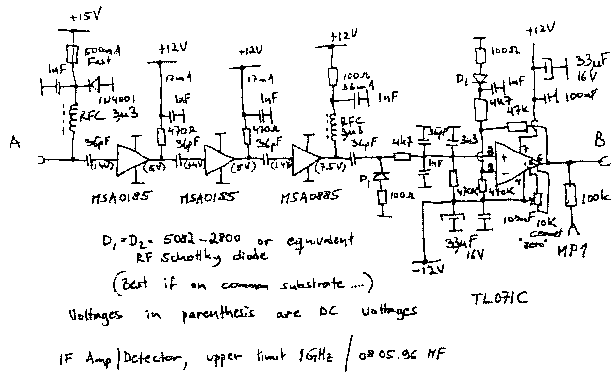 +15V
500mA
Fast
1nF
1N4001
RFC 3µ3
A
36pF
(1.4V)
MSA0185
+12V
17mA
1nF
470Ω
(5V)
36pF
(1.4V)
MSA0185
+12V
17mA
1nF
470Ω
(5V)
36pF
(1.4V)
MSA0885
+15V
100Ω
36mA
1nF
RFC
3µ3
(7.5V)
36pF
D1
100Ω
4k7
36pF
1nF
3n3
+12V
100Ω
D2
1nF
4k7
47k
+12V
33µF
16V
100nF
470k
470k
33µF
16V
100nF
-12V
10k
Cermet
"zero"
TL071C
B
100k
MP1
D1 = D2 = 5082-2800 or equivalent
RF Schottky diode
(Best if on common substrate....)
Voltages in parenthesis are DC voltages
IF Amp/Detector, upper limit 1GHz / 08.05.96 MF